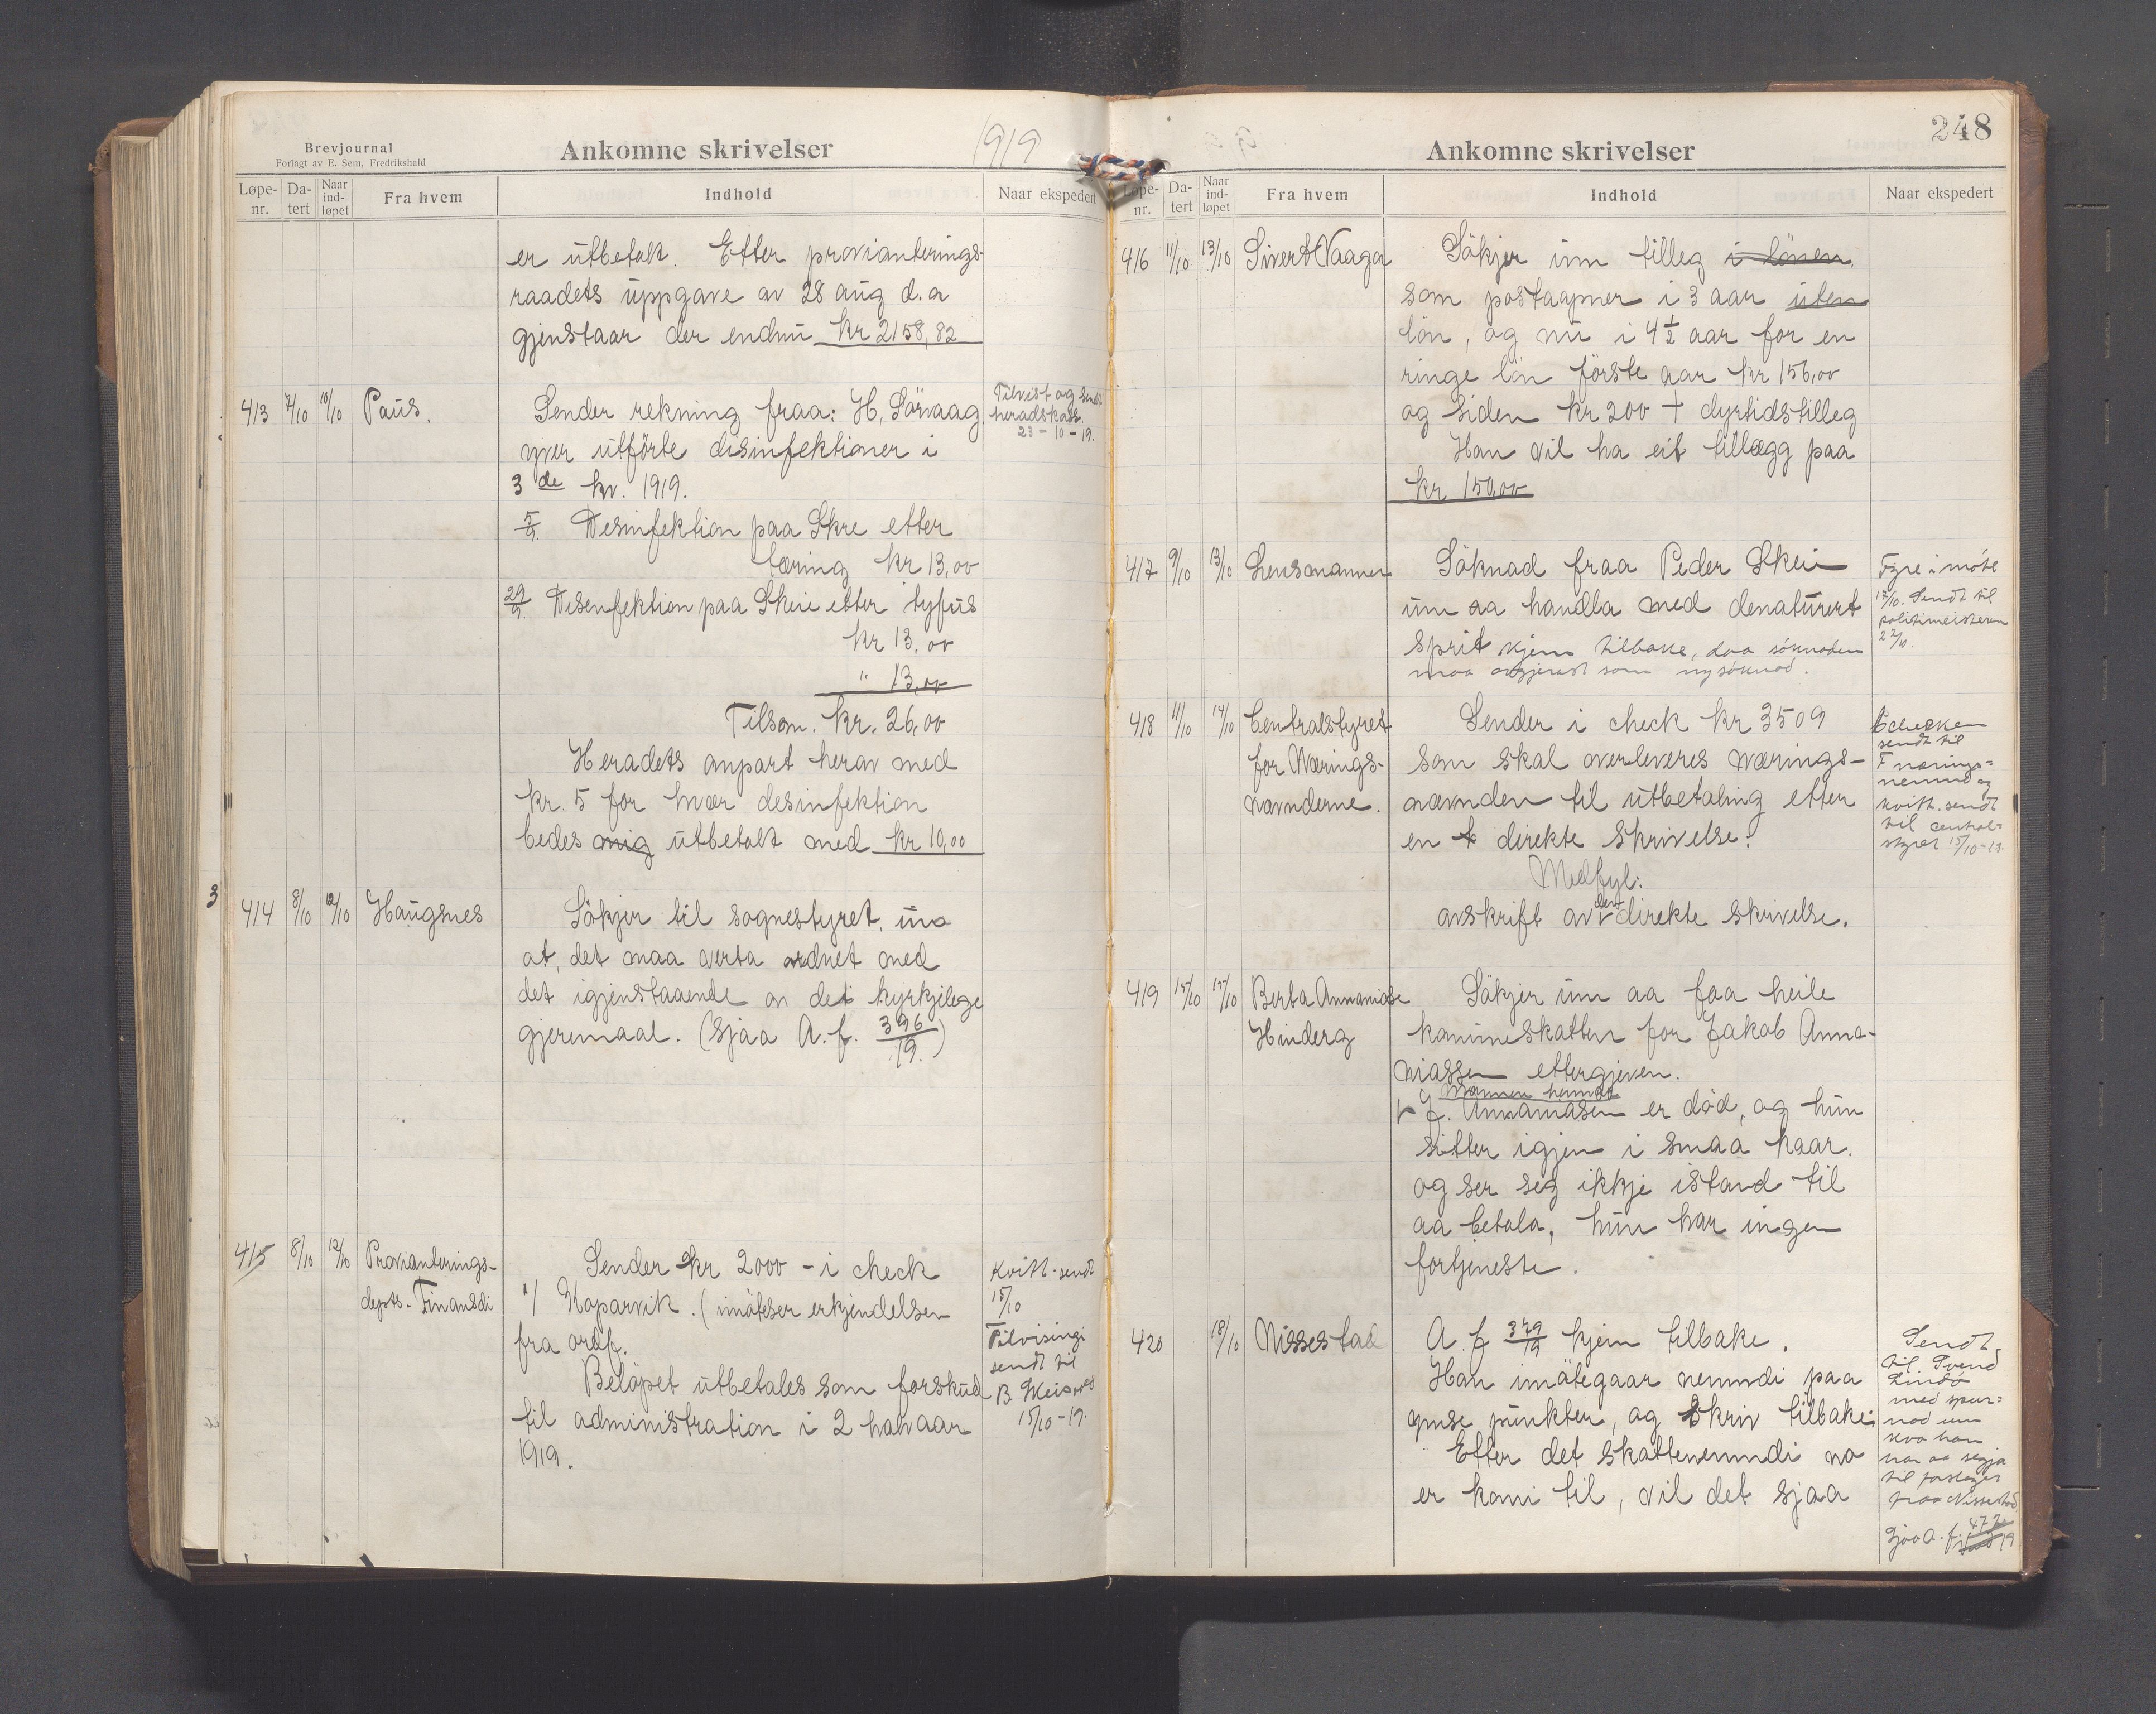 Brevjournal
Forlagt av E. Sem, Fredrikshald
Ankomne skrivelser
1919
Løpe-nr. Da-tert Naar ind-løpet Fra hvem Indhold Naar ekspedert
er utbetalt. Etter provianterings-
raadets uppgave av 28 aug d.a
gjenstaar der endnu kr 2158,82
413 7/10 10/10 Paus.
Sender rekning fraa: H. Sörvaag
yver utförte disinfektioner i
3de kv. 1919.
5/9. Desinfektion paa Skre etter
tæring kr 13,00
29/9. Desenfektion paa Skeie etter tyfus
kr 13,00
" 13,00
Tilsam. kr. 26,00
Heradets anpart herav med
kr. 5 for hvær desinfektion
bedes mig utbetalt med kr 10,00
Tilvist og sendt
heradskass.
23-10-19.
3
414 8/10 10/10 Haugsnes
Sökjer til sognestyret um
at, det maa verta ordnet med
det igjenstaaende av det kyrkjelege
gjeremaal. (Sjaa A.f. 396/19.)
415 8/10 12/10 Provianterings-
depts. Finansdi
Sender kr 2000 - i check
°/ Koparvik. (imöteser erkjendelsen
fra ordf.
Belöpet utbetales som forskud
til administration i 2 halvaar
1919.
Kvitt. sendt
15/10
Tilvising
sendt til
B. Skeisvoll
15/10-19.
248
Ankomne skrivelser
Løpe-nr. Da-tert Naar ind-løpet Fra hvem Indhold Naar ekspedert
416 11/10 13/10 Sivert Vaaga
Sökjer um tilleg i lönen.
som postaapner i 3 aar uten
lön, og nu i 4½ aar for en
ringe lön förste aar kr 156,00
og siden kr 200 + dyrtidstilleg
Han vil ha eit tillægg paa
kr 150,00
417 9/10 13/10 Lensmannen
Söknad fraa Peder Skeie
um aa handla med denaturert
sprit kjem tilbake, daa söknaden
maa avgjerast som ny söknad.
Fyre i møte
17/10. Sendt til
politimeisteren
22/10.
418 11/10 14/10 Centralstyret
for Nærings-
nævnderne.
Sender i check kr 3509
som skal overleveres nærings-
nævnden til utbetaling etter
en direkte skrivelse.
Medfyl:
avskrift av den direkte skrivelse.
Checken
sendt til
F nærings-
nemnd og
kvitt. sendt
til central-
styret 15/10-19.
419 15/10 15/10 Berta Annaniase
Hinderg
Sökjer um aa faa heile
kommeskatten for Jakob Anna-
niassen ettergjeven.
Mannen hennar
J. Annaniasen er död, og hun
sitter igjen i smaa kaar.
og ser seg ikkje istand til
aa betala, hun har ingen
fortjeneste.
420 18/10 Nissestad
A.f 379/19 kjem tilbake.
Han imötegaar nemndi paa
ymse punkter, og skriv tilbake:
Etter det skattenemndi no
er komi til, vil det sjaa
Sendt
til Svend
Lindø
med spur-
nad um
kva han
har aa segja
til forslaget
fraa Nissestad
Sjaa A.f. 472/19